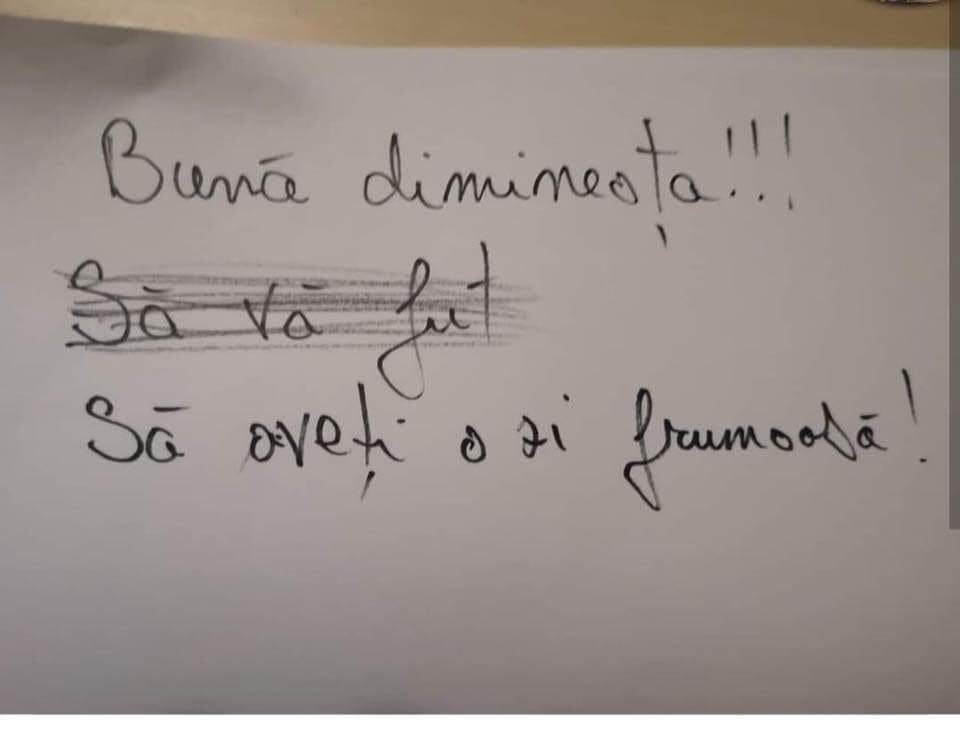 Bună dimineața!!!
Să vă fut
Să aveți o zi frumoasă!